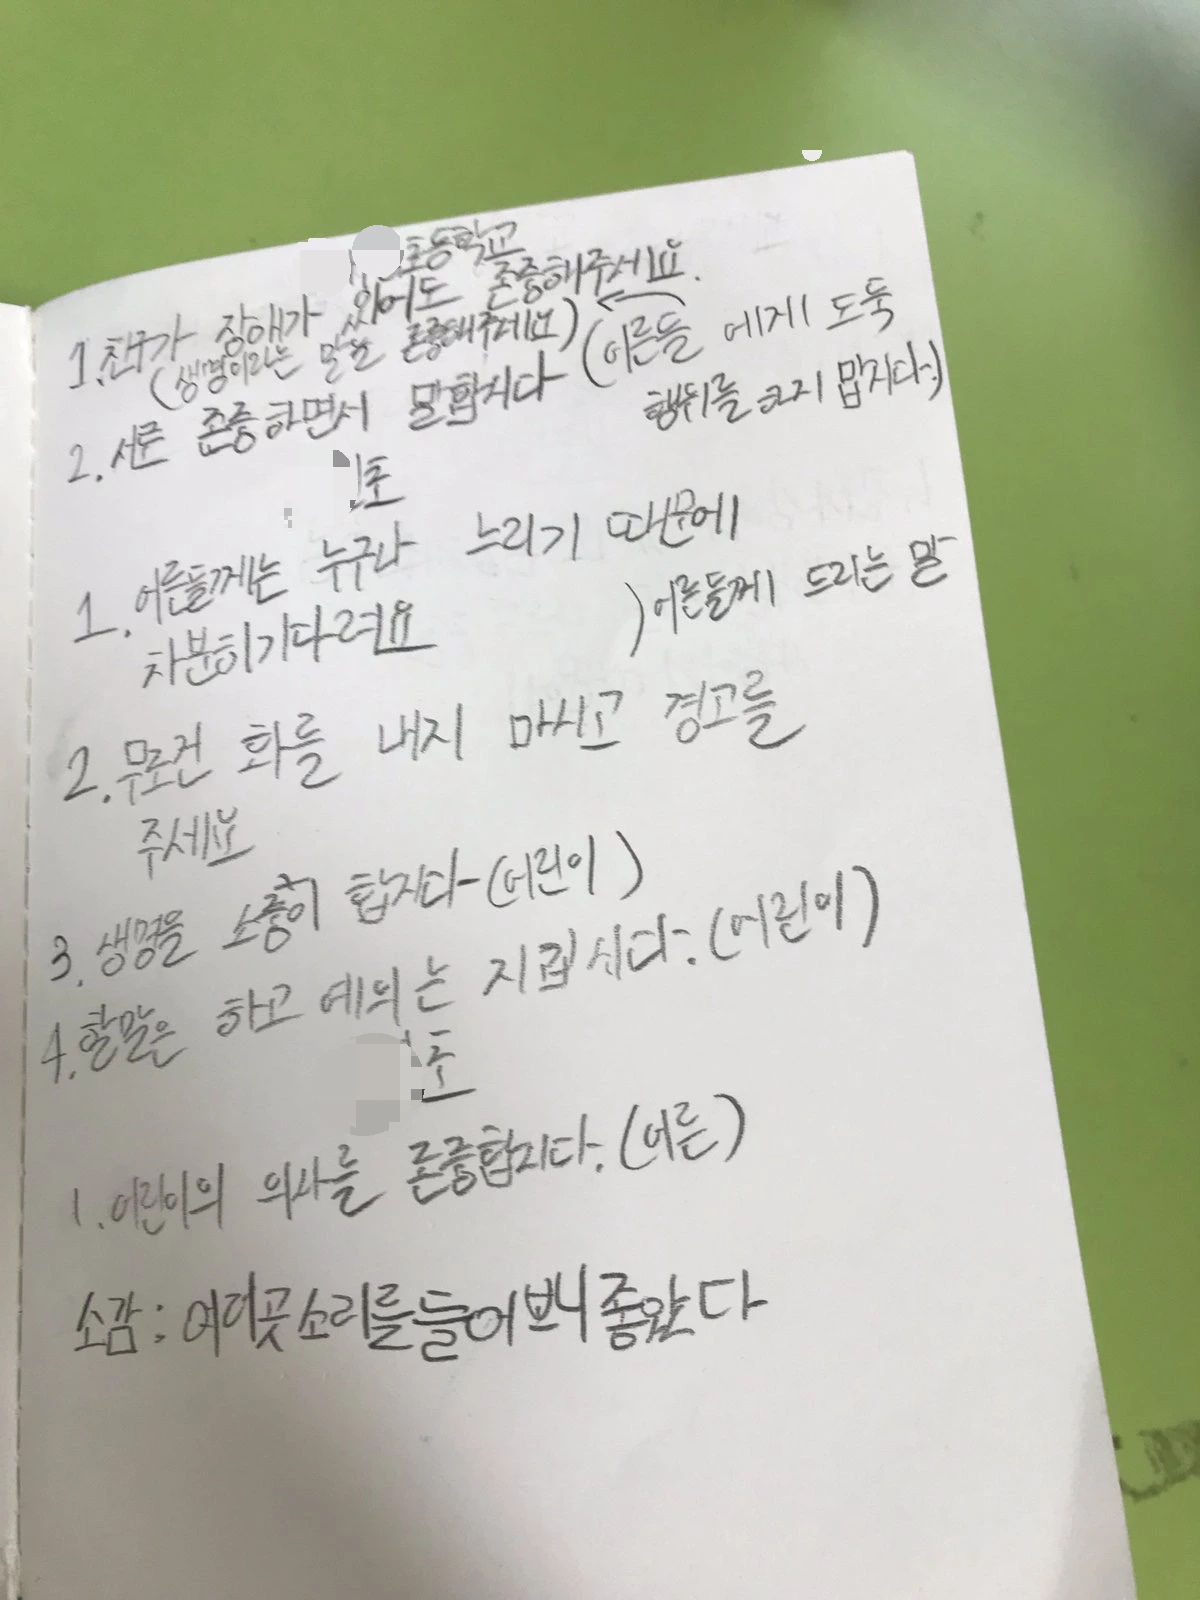 초등학교
1. 친구가 장애가 있어도 존중해주세요.
(생명이라는 말을 존중해주세요)
2. 서로 존중하면서 말합시다 (어른들 에게 도둑
행위를 하지 맙지다.)
초
1. 어른들께는 누구나 느리기 때문에
차분히기다려요 ) 어른들께 드리는 말
2. 무조건 화를 내지 마시고 경고를
주세요
3. 생명을 소중히 합지다 (어린이)
4. 할말은 하고 예의는 지킵시다. (어린이)
초
1. 어린이의 의사를 존중합지다. (어른)
소감: 여러곳소리를들어보니좋았다